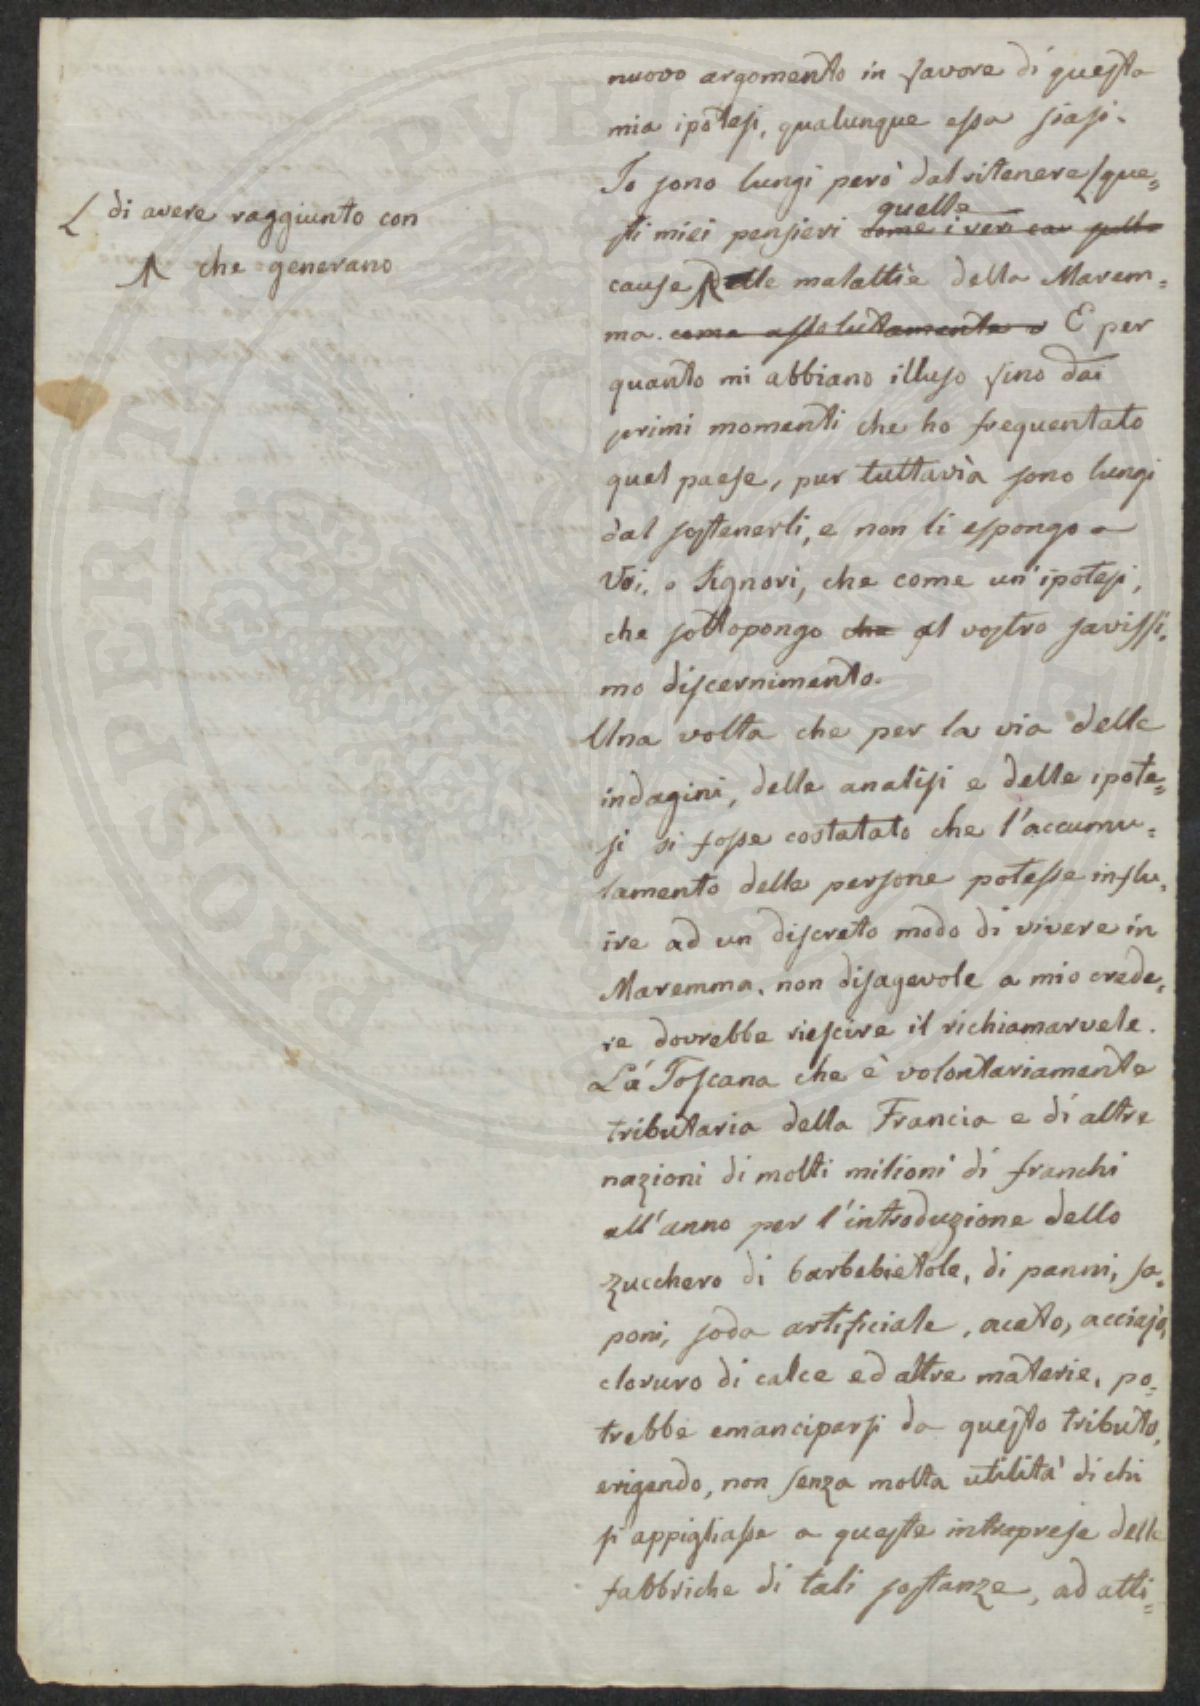 nuovo argomento in favore di questa
mia ipotesi, qualunque essa siasi.
Io sono lungi però dal ritenere que=
di avere raggiunto con
che generano
quelle
sti miei pensieri come i veri cau
cause delle malattie della Marem=
ma. come assolutamente E per
quanto mi abbiano illuso sino dai
primi momenti che ho frequentato
quel paese, pur tuttavia sono lungi
dal sostenerli, e non li espongo a
Voi, o Signori, che come un' ipotesi,
che sottopongo che al vostro savissi=
mo discernimento.
Una volta che per la via delle
indagini, delle analisi e delle ipote=
si si fosse costatato che l'accumu=
lamento delle persone potesse influ=
ire ad un discreto modo di vivere in
Maremma, non disagevole a mio crede=
re dovrebbe riescire il richiamarvele.
La Toscana che è volontariamente
tributaria della Francia e di altre
nazioni di molti milioni di franchi
all'anno per l'introduzione dello
zucchero di barbebietole, di panni, sa=
poni, soda artificiale, aceto, acciajo,
cloruro di calce ed altre materie, po=
trebbe emanciparsi da questo tributo,
erigendo, non senza molta utilità di chi
si appigliasse a queste intraprese delle
fabbriche di tali sostanze, ad atti=
PVBLICAE
PROSPERITATI